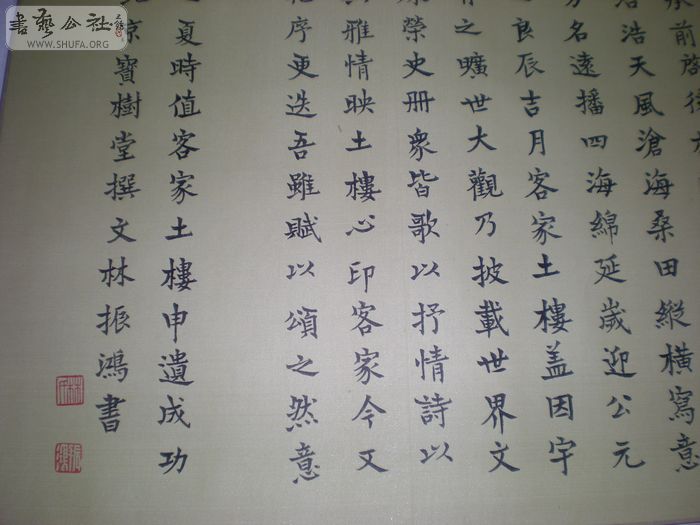 前
浩天風滄海桑田縱橫寫意
名遠播四海綿延歲迎公元
良辰吉月客家土樓蓋因宇
之曠世大觀乃披載世界文
榮史冊衆皆歌以抒情詩以
雅情映土樓心印客家今又
序更迭吾雖賦以頌之然意
夏時值客家土樓申遺成功
寶樹堂撰文林振鴻書
書藝公社
WWW.SHUFA.ORG